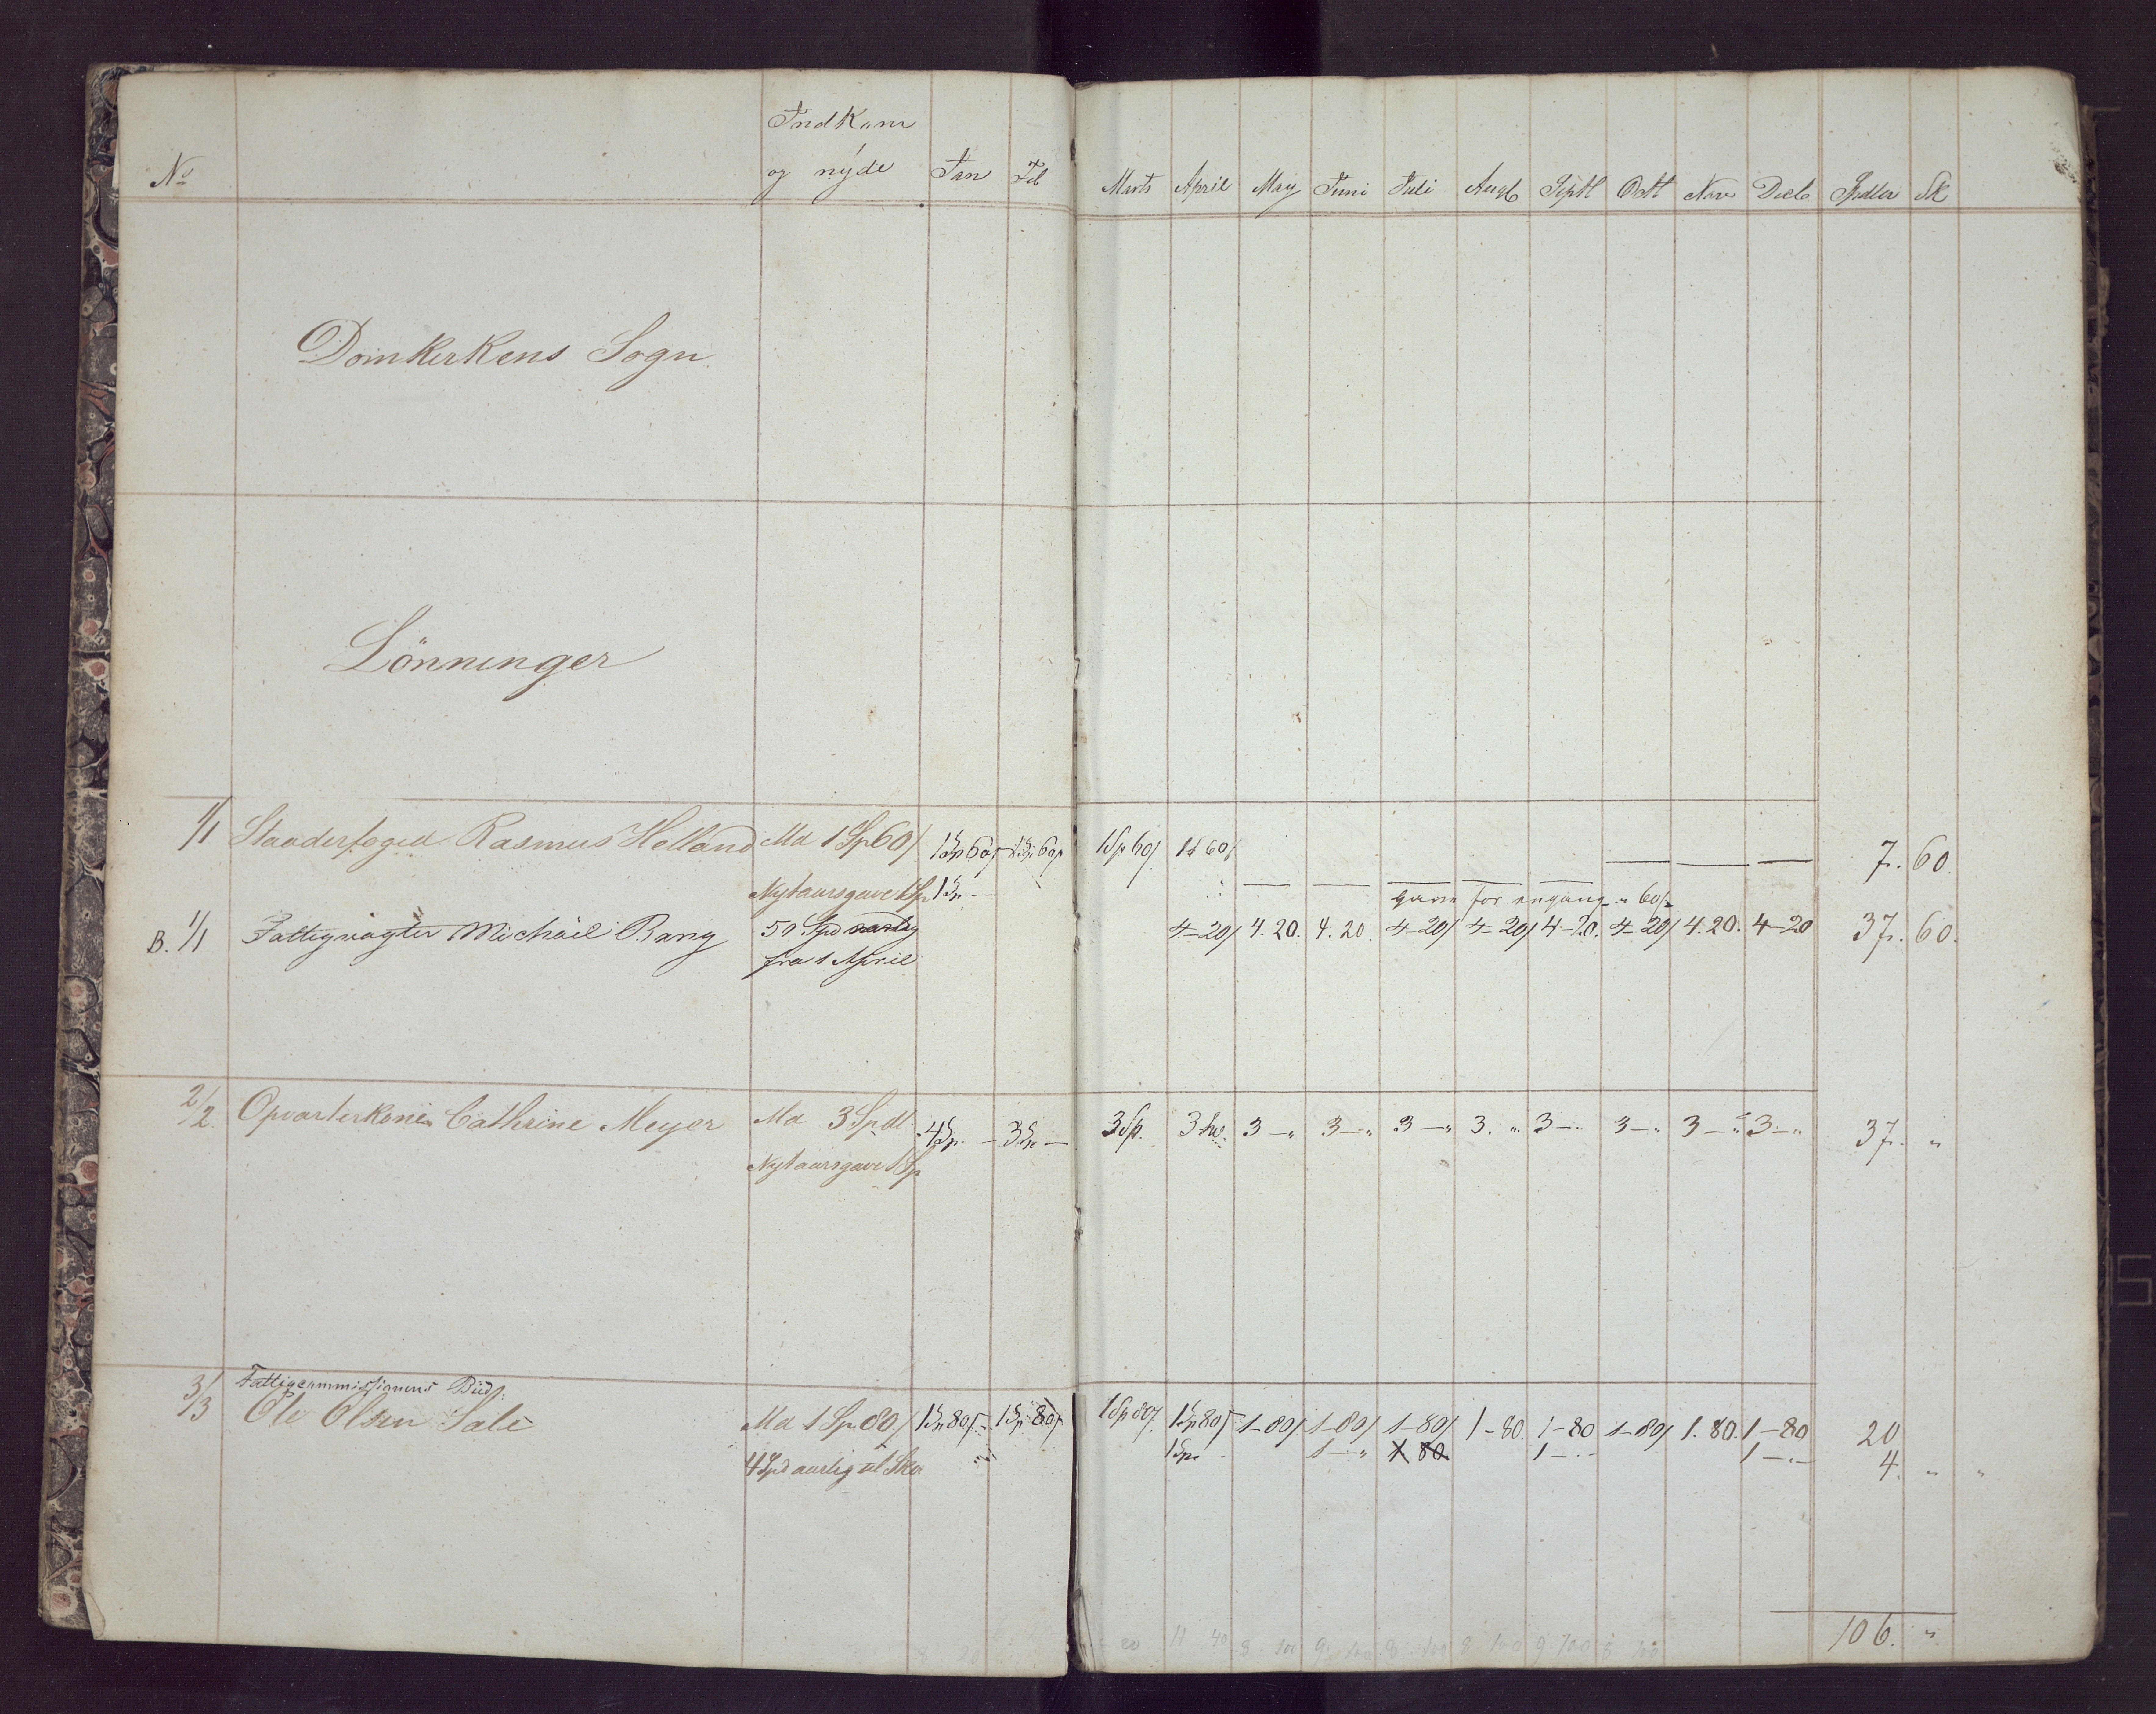 Indkom
No og nÿde Jan Feb Marts April May Juni Juli Augb Septb Octb Nov Decb Spdlr Sk
Domkirkens Sogn
Lönninger
1/1 Staaderfoged Rasmus Helland Md 1 Sp 60 1 Sp 60 1 Sp 60 1 Sp 60 1 60 — — — — — — — — 7. 60.
Nytaarsgave 1 Sp 1 Sp. -
gave for engang " 60
B. 1/1 Fattigvægter Michäel Bang 50 Spd aarlig 4-20 4.20. 4.20. 4-20 4-20 4-20. 4-20 4.20. 4-20 37. 60.
fra 1 April
2/2. Opvarterkone Cathrine Meyer Md 3 Spdl. 4 Sp. — 3 Sp — 3 Sp. 3 3 — " 3 — " 3 — " 3. " 3 — " 3 — " 3 — " 3 — " 37. "
Nytaarsgave 1 Sp
Fattigcommissionens Büd:
3/3 Ole Olsen Sale Md 1 Sp 80 1 Sp 80 1 Sp 80 1 Sp 80 1 Sp 80 1-80 1-80 1-80 1-80. 1-80 1-80 1.80. 1-80 20
4 Spd aarlig til Sko 1 Sp. 1 — " 1 80 1 — " 1 — " 4. " "
8 20 20 11 40 8 100 9 100 8 100 8 100 9 100 8 100 106. "